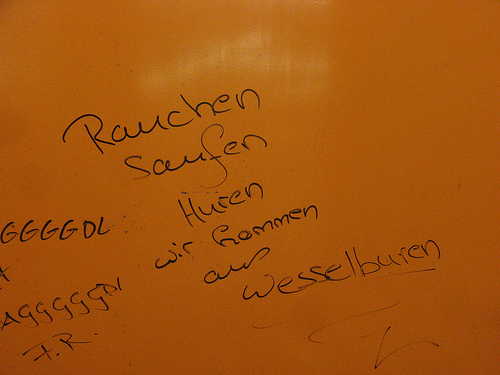 Rauchen
Saufen
Huren
wir kommen
aus
Wesselburen
GGGGGDL
AGGGGGDL
F.R.